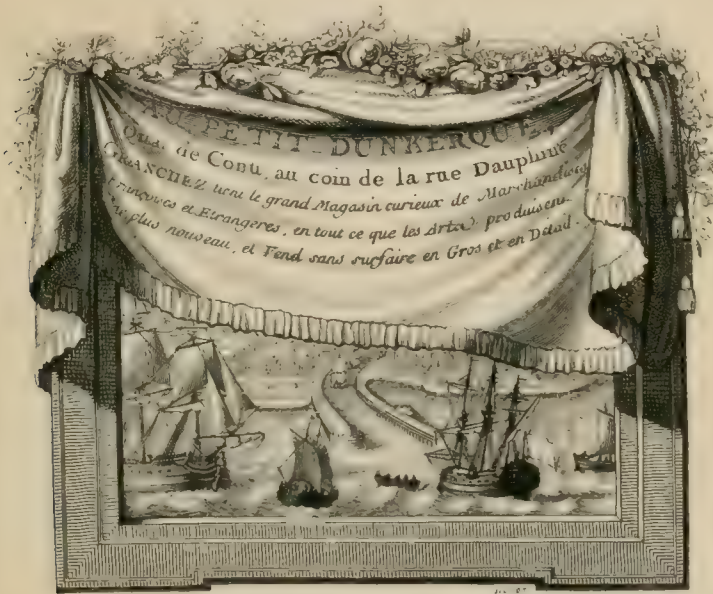 AU PETIT DUNKERQUE,
Quai de Conti, au coin de la rue Dauphine
GRANCHEZ tient le grand Magasin curieux de Marchandises
Françoises et Etrangeres, en tout ce que les Arts produisent
de plus nouveau, et Vend sans surfaire en Gros et en Détail.